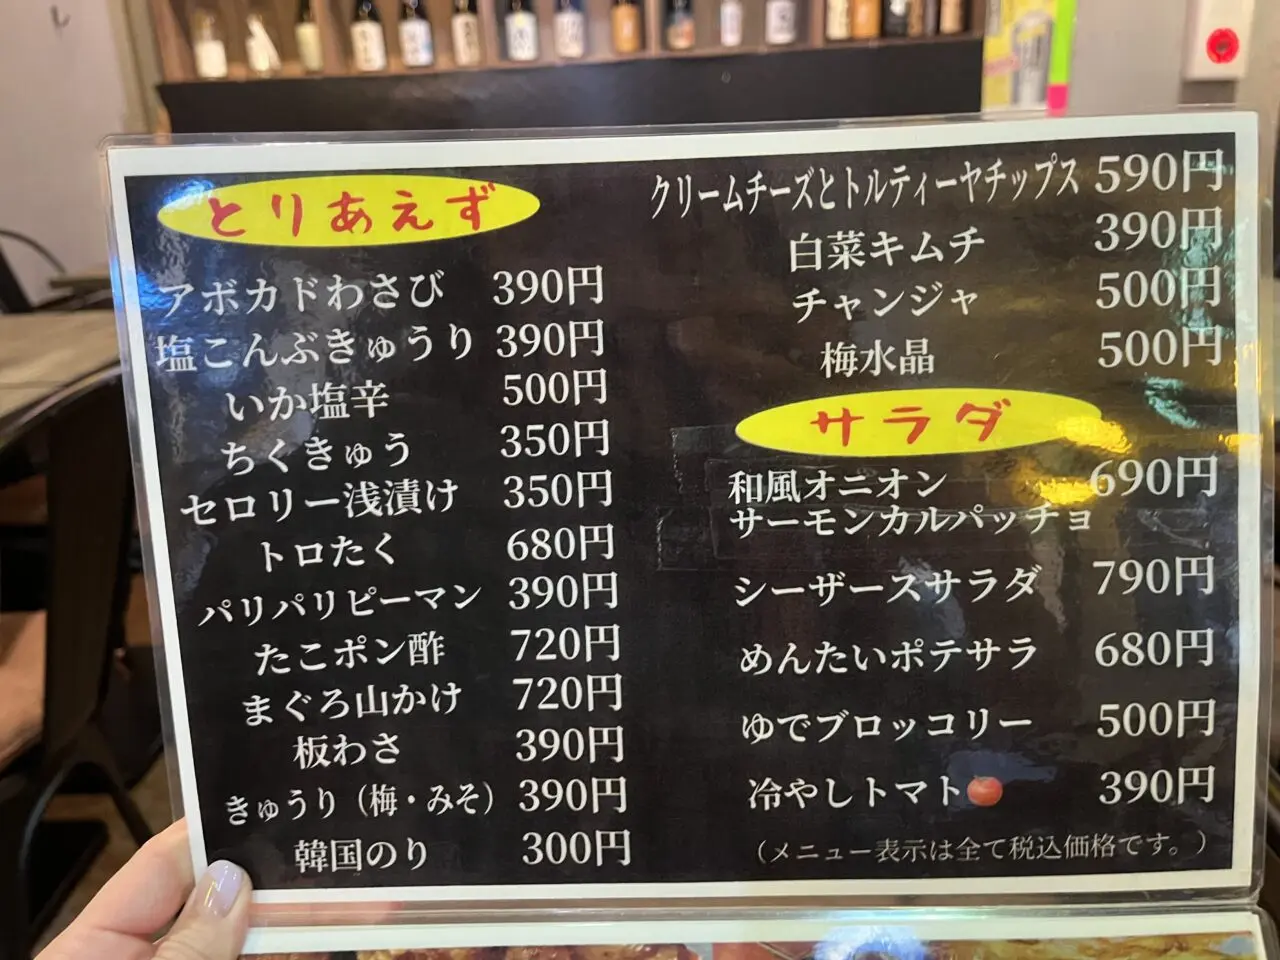 とりあえず
アボカドわさび 390円
塩こんぶきゅうり 390円
いか塩辛 500円
ちくきゅう 350円
セロリー浅漬け 350円
トロたく 680円
パリパリピーマン 390円
たこポン酢 720円
まぐろ山かけ 720円
板わさ 390円
きゅうり（梅・みそ） 390円
韓国のり 300円
クリームチーズとトルティーヤチップス 590円
白菜キムチ 390円
チャンジャ 500円
梅水晶 500円
サラダ
和風オニオン 690円
サーモンカルパッチョ
シーザースサラダ 790円
めんたいポテサラ 680円
ゆでブロッコリー 500円
冷やしトマト🍅 390円
（メニュー表示は全て税込価格です。）